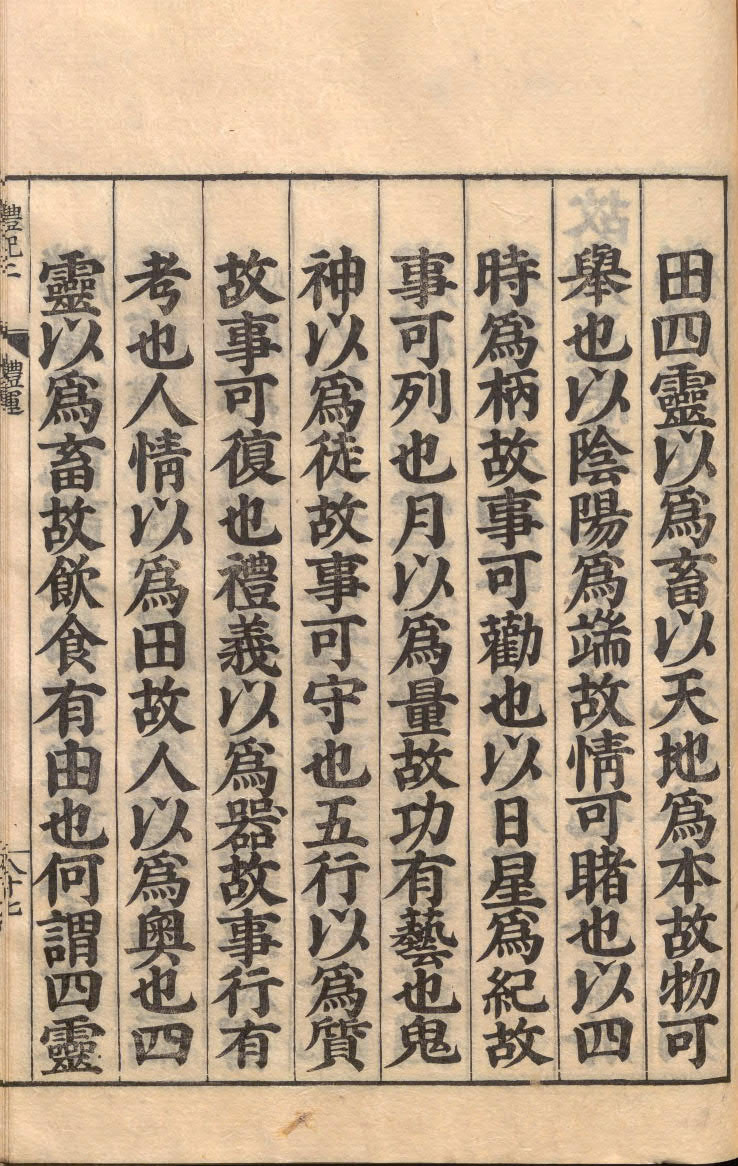 田四靈以爲畜以天地爲本故物可
舉也以陰陽爲端故情可睹也以四
時爲柄故事可勸也以日星爲紀故
事可列也月以爲量故功有藝也鬼
神以爲徒故事可守也五行以爲質
故事可復也禮義以爲器故事行有
考也人情以爲田故人以爲奧也四
靈以爲畜故飲食有由也何謂四靈
禮運